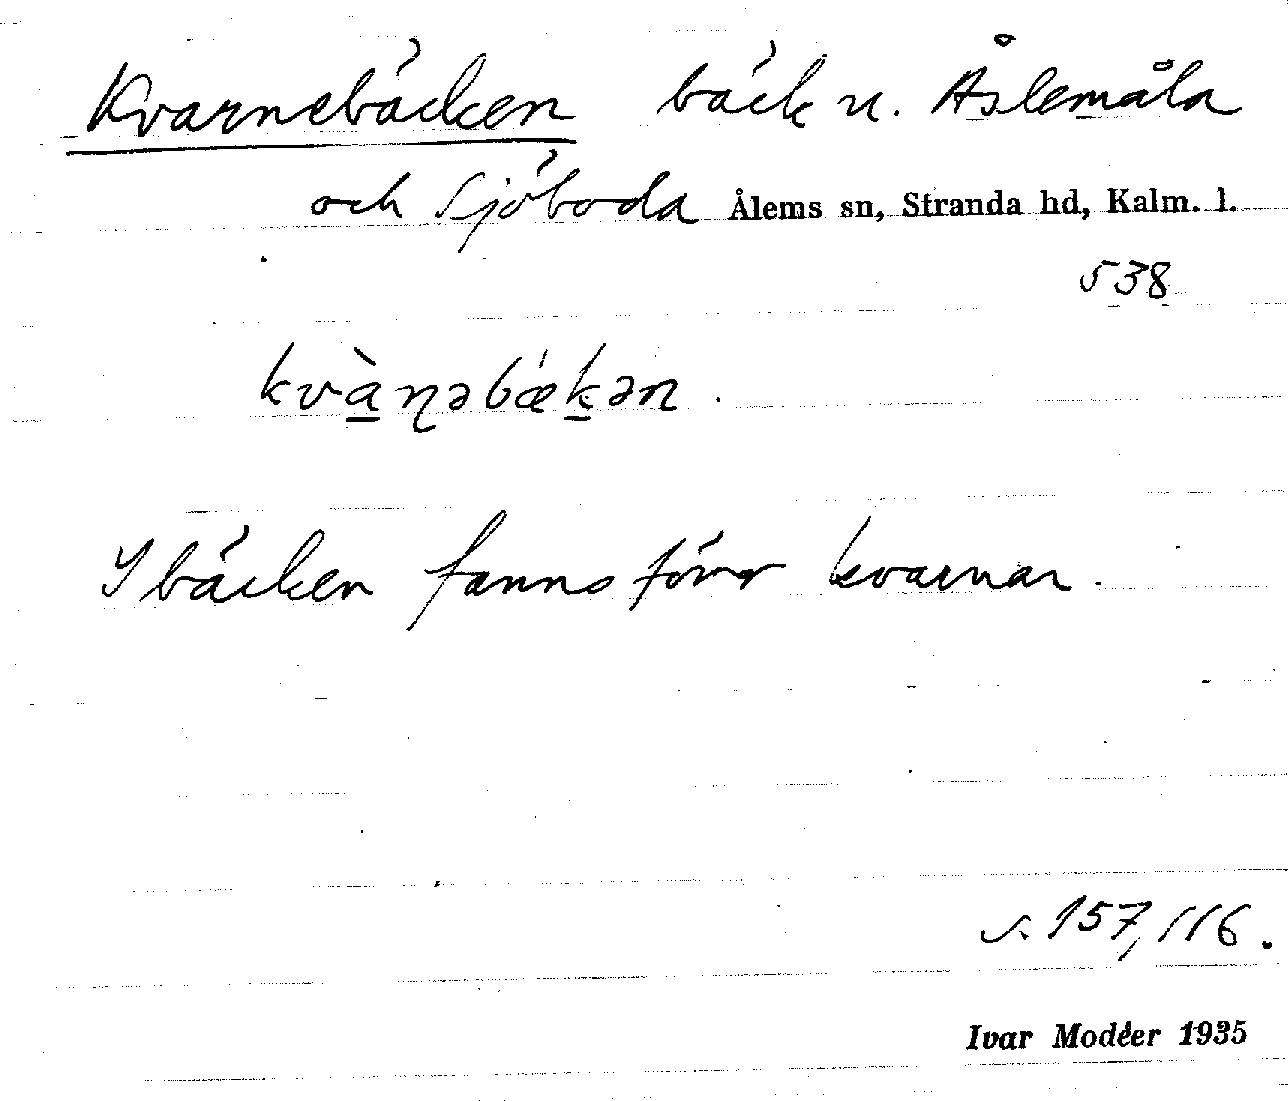 Kvarnebäcken bäck u. Åslemåla
och Sjöboda Ålems sn, Stranda hd, Kalm. l.
538
kvàɳəbǽkən.
I bäcken fanns förr kvarnar.
s. 157, 116.
Ivar Modéer 1935